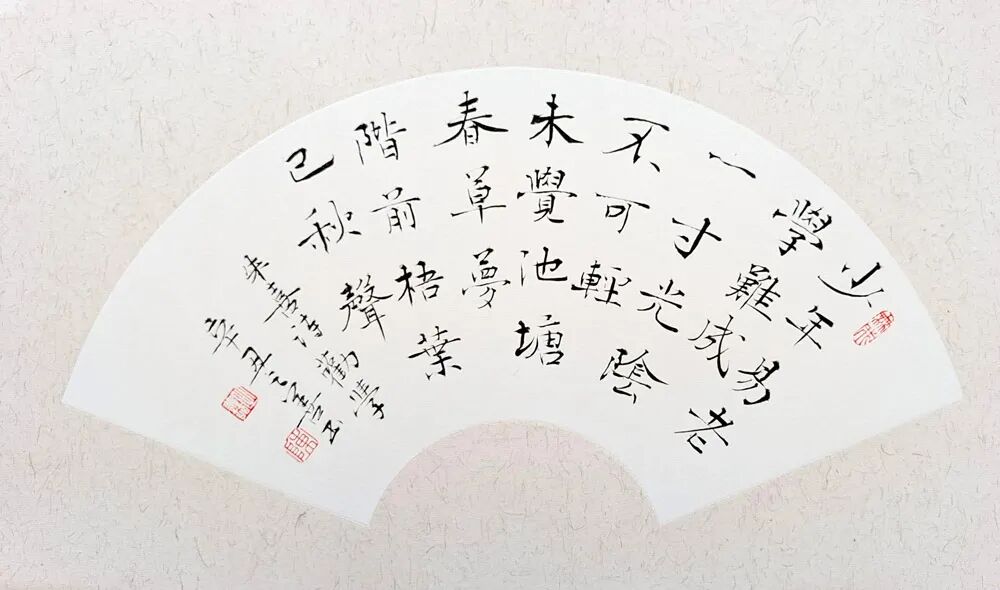 少年易老
學難成
一寸光陰
不可輕
未覺池塘
春草夢
階前梧葉
已秋聲
朱熹詩勸學
辛丑